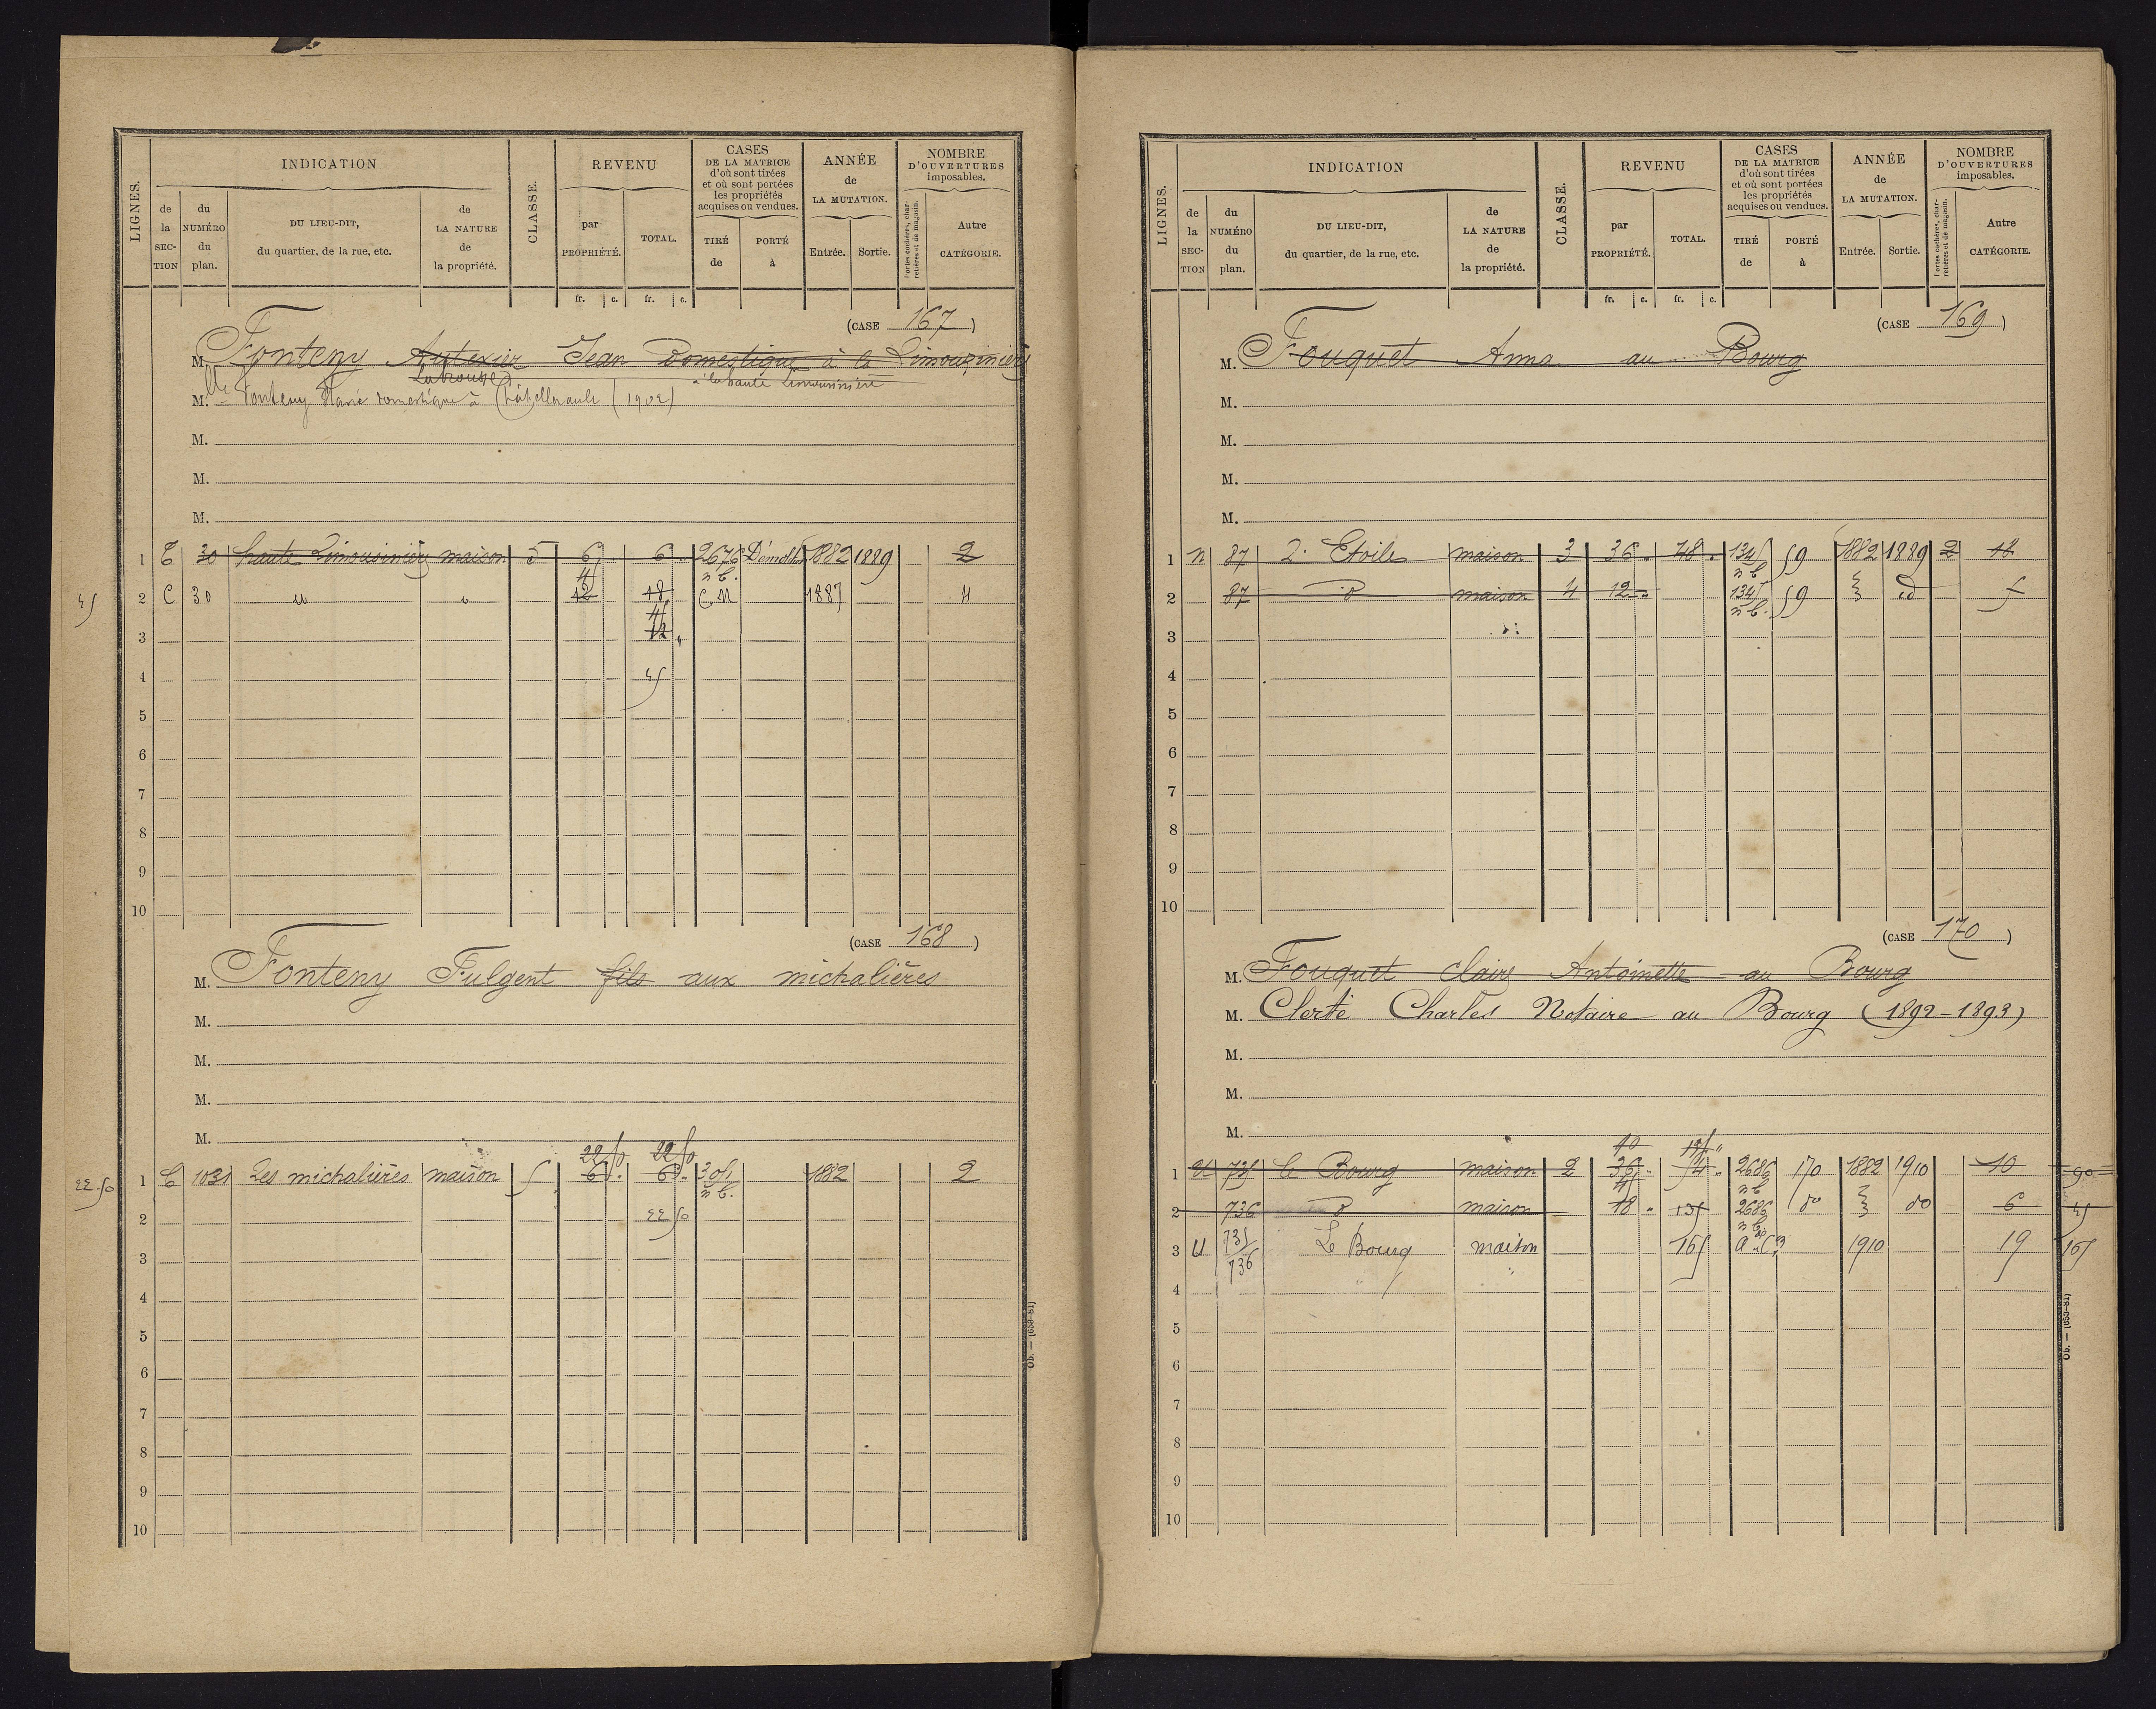 LIGNES.
INDICATION
de la SECTION
du NUMÉRO du plan.
DU LIEU-DIT, du quartier, de la rue, etc.
de LA NATURE de la propriété.
CLASSE.
REVENU
par PROPRIÉTÉ.
TOTAL.
CASES DE LA MATRICE d'où sont tirées et où sont portées les propriétés acquises ou vendues.
TIRÉ de
PORTÉ à
ANNÉE de LA MUTATION.
Entrée.
Sortie.
NOMBRE D'OUVERTURES imposables.
Portes cochères, charretières et de magasin.
Autre CATÉGORIE.
fr. c. fr. c.
(CASE 167)
M. Fonteny Autexier Jean Domestique à la Limouzinière
Labrousse à la haute Limousinière
M.lle Fonteny Marie domestique à Châtellerault (1902)
M.
M.
M.
1 C 30 haute Limousinière maison 5 6 6 2676 Démoli 1882 1889 2
45 n b.
45 2 C 30 " " 12 18 C N 1887 4
3 45 12 "
4 45
5
6
7
8
9
10
(CASE 168)
M. Fonteny Fulgent fils aux michalières
M.
M.
M.
M.
22 50 22 50
22.50 1 C 1031 Les michalières maison 5 6 . 6 . 305 1882 2
n b.
2 22 50
3
4
5
6
7
8
9
10
Ob. — (653-81)
LIGNES.
INDICATION
de la SECTION
du NUMÉRO du plan.
DU LIEU-DIT, du quartier, de la rue, etc.
de LA NATURE de la propriété.
CLASSE.
REVENU
par PROPRIÉTÉ.
TOTAL.
CASES DE LA MATRICE d'où sont tirées et où sont portées les propriétés acquises ou vendues.
TIRÉ de
PORTÉ à
ANNÉE de LA MUTATION.
Entrée.
Sortie.
NOMBRE D'OUVERTURES imposables.
Portes cochères, charretières et de magasin.
Autre CATÉGORIE.
fr. c. fr. c.
(CASE 169)
M. Fouquet Anna au Bourg
M.
M.
M.
M.
1 N 87 2. Etoile maison 3 36 " 48 " 1345 59 1882 1889 2 18
n b
2 87 d maison 4 12 " 1345 59 id 5
n b.
3
4
5
6
7
8
9
10
(CASE 170)
M. Fouquet Claire Antoinette au Bourg
M. Clerté Charles Notaire au Bourg (1892-1893)
M.
M.
M.
90 135 "
1 U 735 le Bourg maison 2 36 " 54 " 2686 170 1882 1910 10 90
45 n b
2 736 d maison 18 " 135 2686 do do 6 45
n b
3 U 735 736 Le Bourg maison 165 1910 19 165
4
5
6
7
8
9
10
Ob. — (653-81)